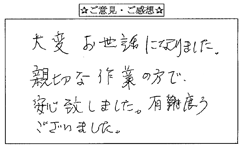 ☆ご意見・ご感想☆
大変 お世話になりました。
親切な作業の方で、
安心致しました。有難う
ございました。